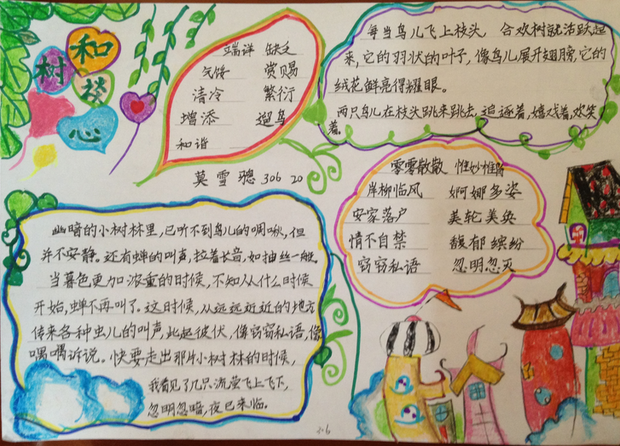 和
树
谈
心
端详 缺乏
气馁 赏赐
清冷 繁衍
增添 遛鸟
和谐
莫雪璁 306 20
每当鸟儿飞上枝头 合欢树就活跃起
来,它的羽状的叶子,像鸟儿展开翅膀,它的
绒花鲜亮得耀眼。
两只鸟儿在枝头跳来跳去,追逐着,嬉戏着,欢笑
着。
零零散散 惟妙惟肖
岸柳临风 婀娜多姿
安家落户 美轮美奂
情不自禁 馥郁 缤纷
窃窃私语 忽明忽灭
幽暗的小树林里,已听不到鸟儿的啁啾,但
并不安静。还有蝉的叫声,拉着长音,如抽丝一般。
当暮色更加浓重的时候,不知从什么时候
开始,蝉不再叫了。这时候,从远远近近的地方
传来各种虫儿的叫声,此起彼伏,像窃窃私语,像
喁喁诉说。快要走出那片小树林的时候,
我看见了几只流萤飞上飞下,
忽明忽暗,夜已来临。